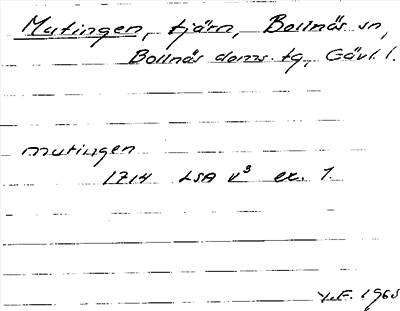 Mutingen, tjärn, Bollnäs sn,
Bollnäs doms. tg, Gävl. l.
mutingen
1714 LSA V³ ex. 1.
V.E. 1965